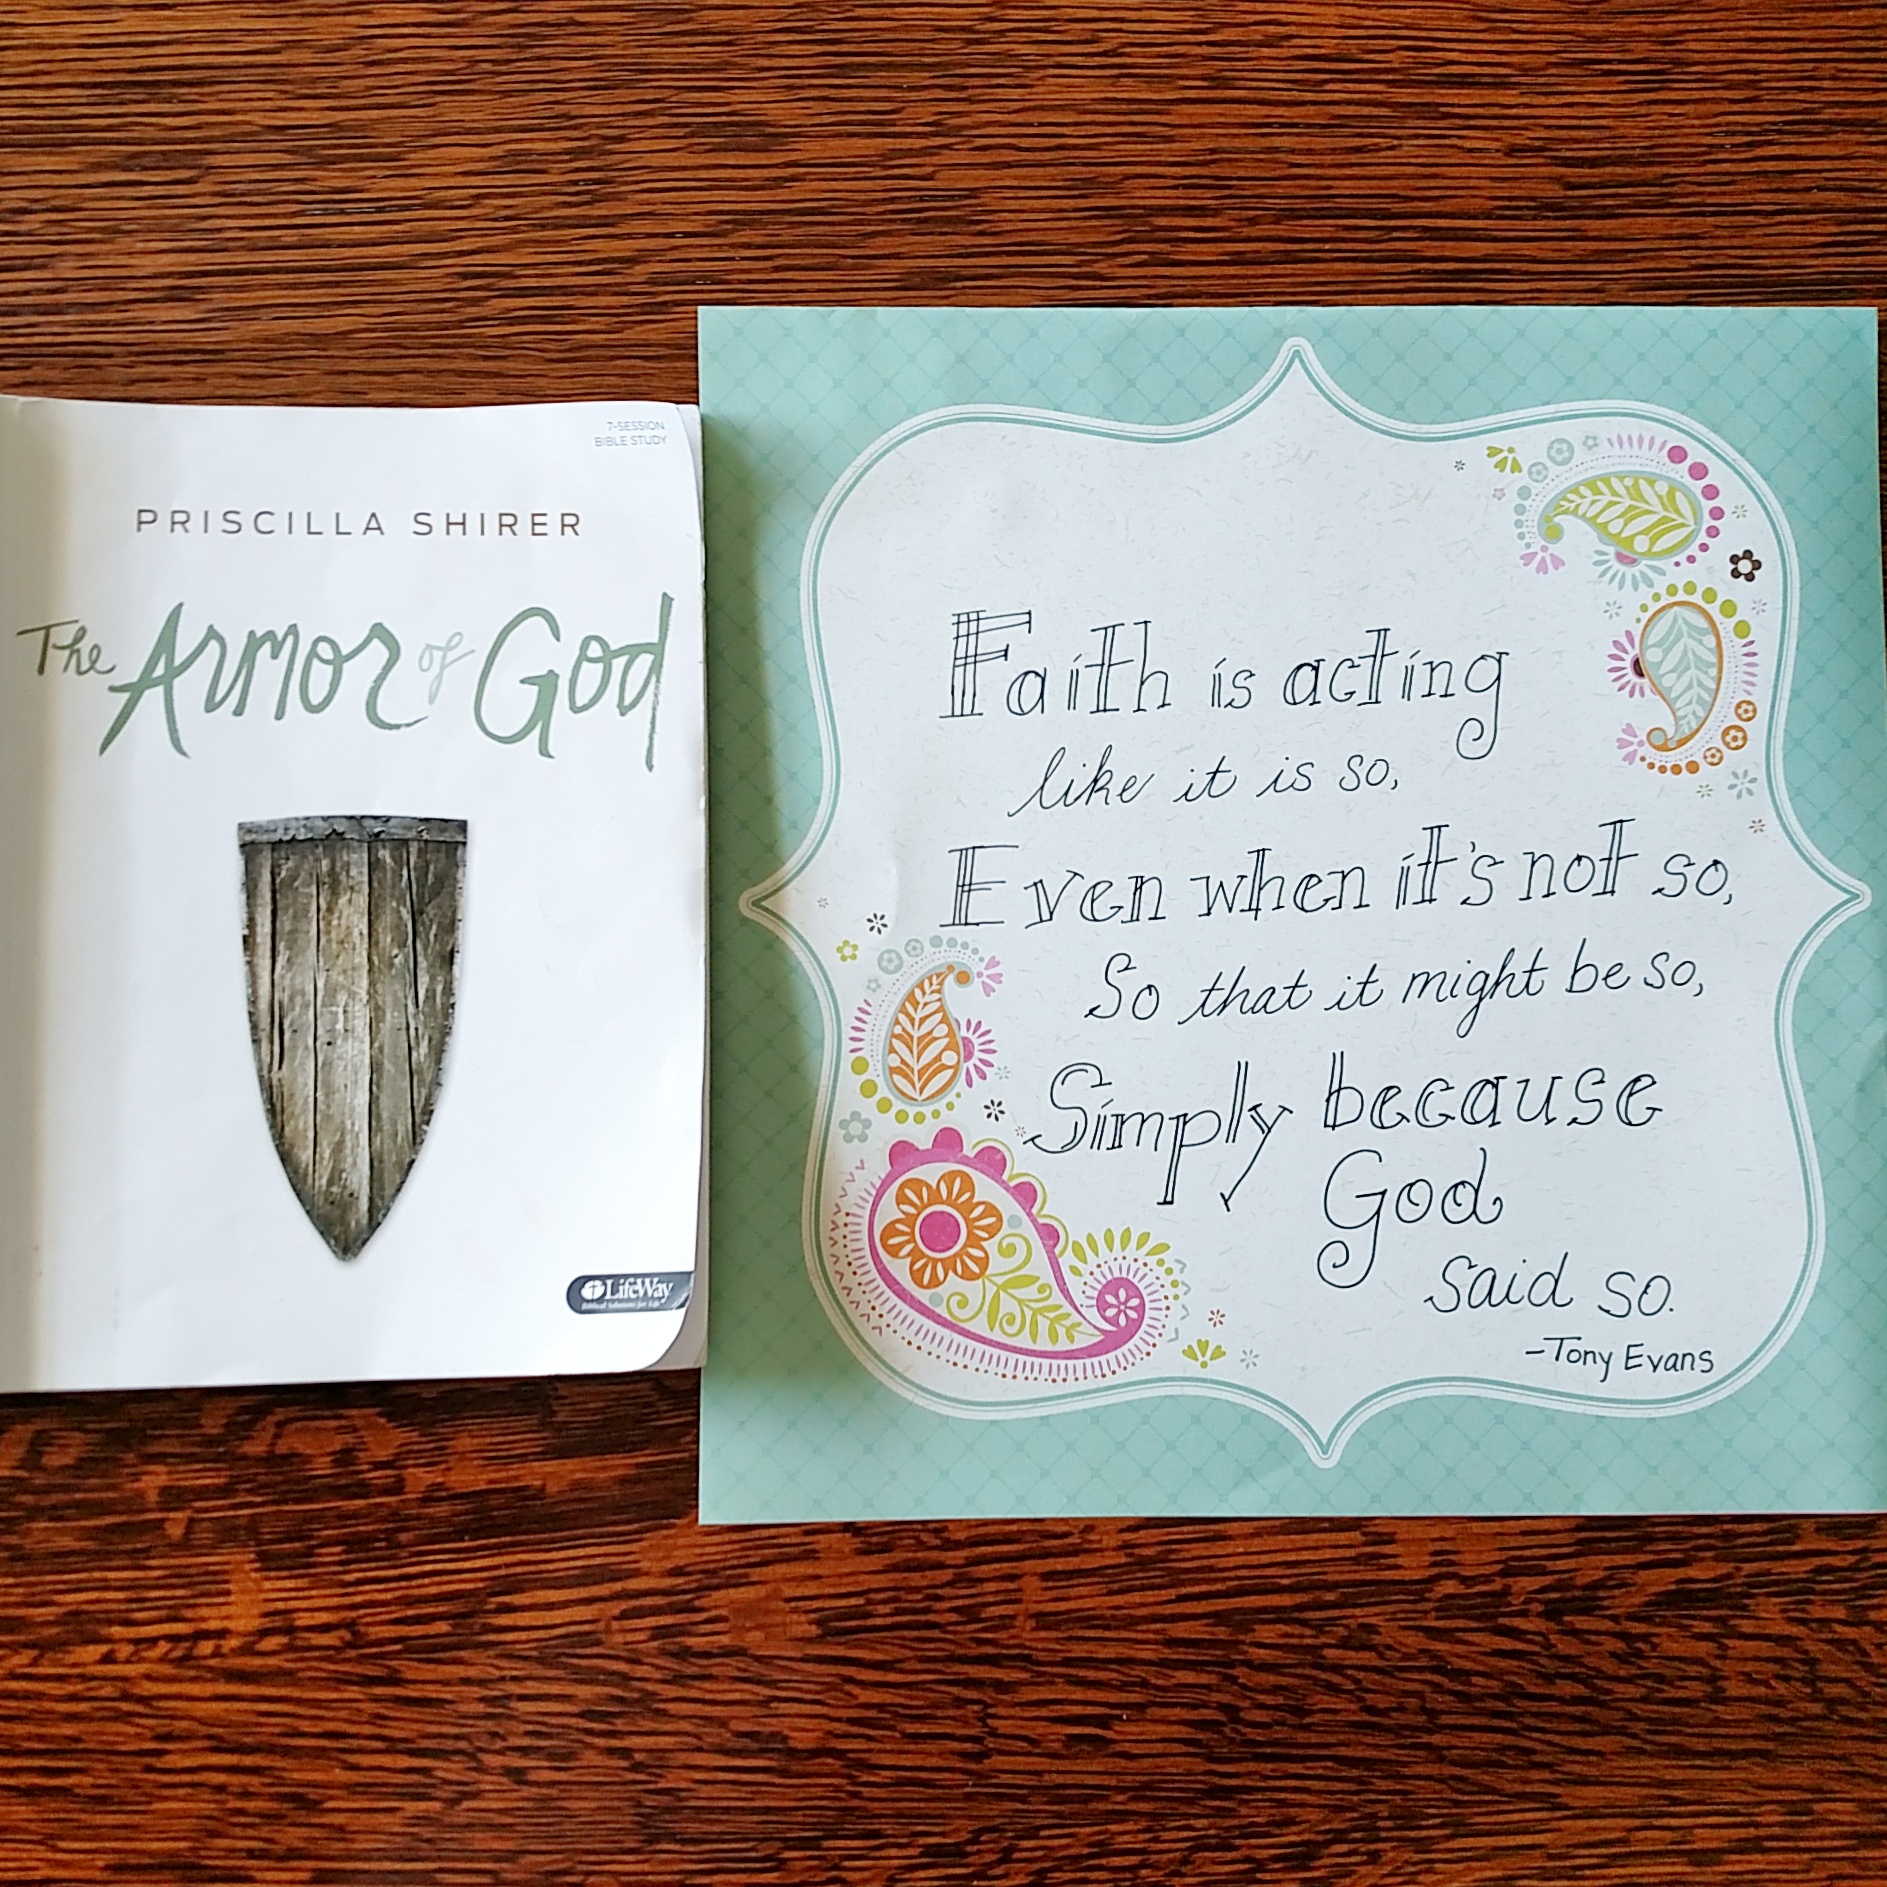 7-SESSION
BIBLE STUDY
PRISCILLA SHIRER
The Armor of God
LifeWay
Biblical Solutions for Life
Faith is acting
like it is so,
Even when it's not so,
So that it might be so,
Simply because
God
said so.
-Tony Evans